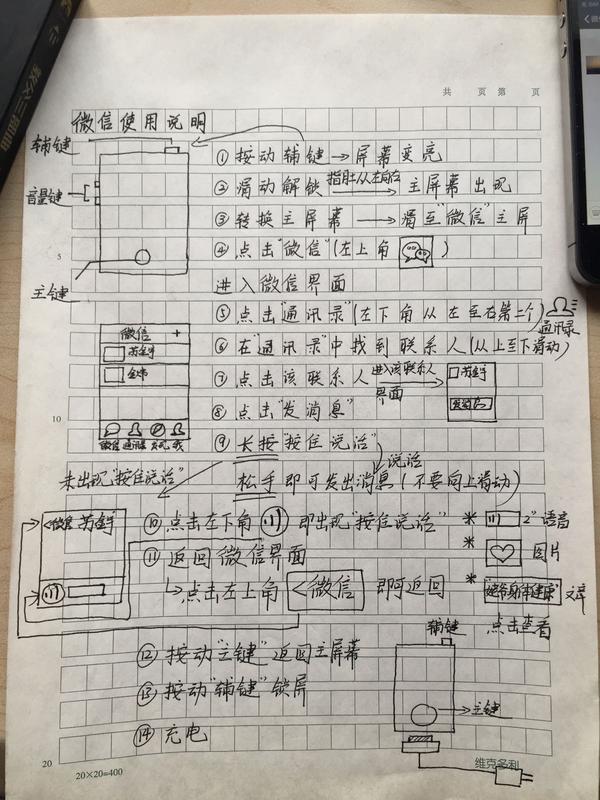 共 页 第 页
微信使用说明
辅键
音量键
主键
①按动辅键→屏幕变亮
②滑动解锁 指肚从左向右→主屏幕出现
③转换主屏幕→滑至“微信”主屏
④点击“微信”(左上角 )
进入微信界面
⑤点击“通讯录”(左下角从左至右第二个)
通讯录
⑥在“通讯录”中找到联系人(从上至下滑动)
⑦点击该联系人 进入该联系人界面→
⑧点击“发消息”
⑨长按“按住说话”
说话
松手即可发出消息(不要向上滑动)
微信 +
微信 通讯录 发现 我
发消息
未出现“按住说话”
⑩点击左下角 即出现“按住说话”
⑪返回微信界面
↳点击左上角 <微信 即可返回
<微信
* 2" 语音
* 图片
* 文字
点击查看
⑫按动“主键”返回主屏幕
⑬按动“辅键”锁屏
⑭充电
辅键
主键
5
10
20
20×20=400
维克多利